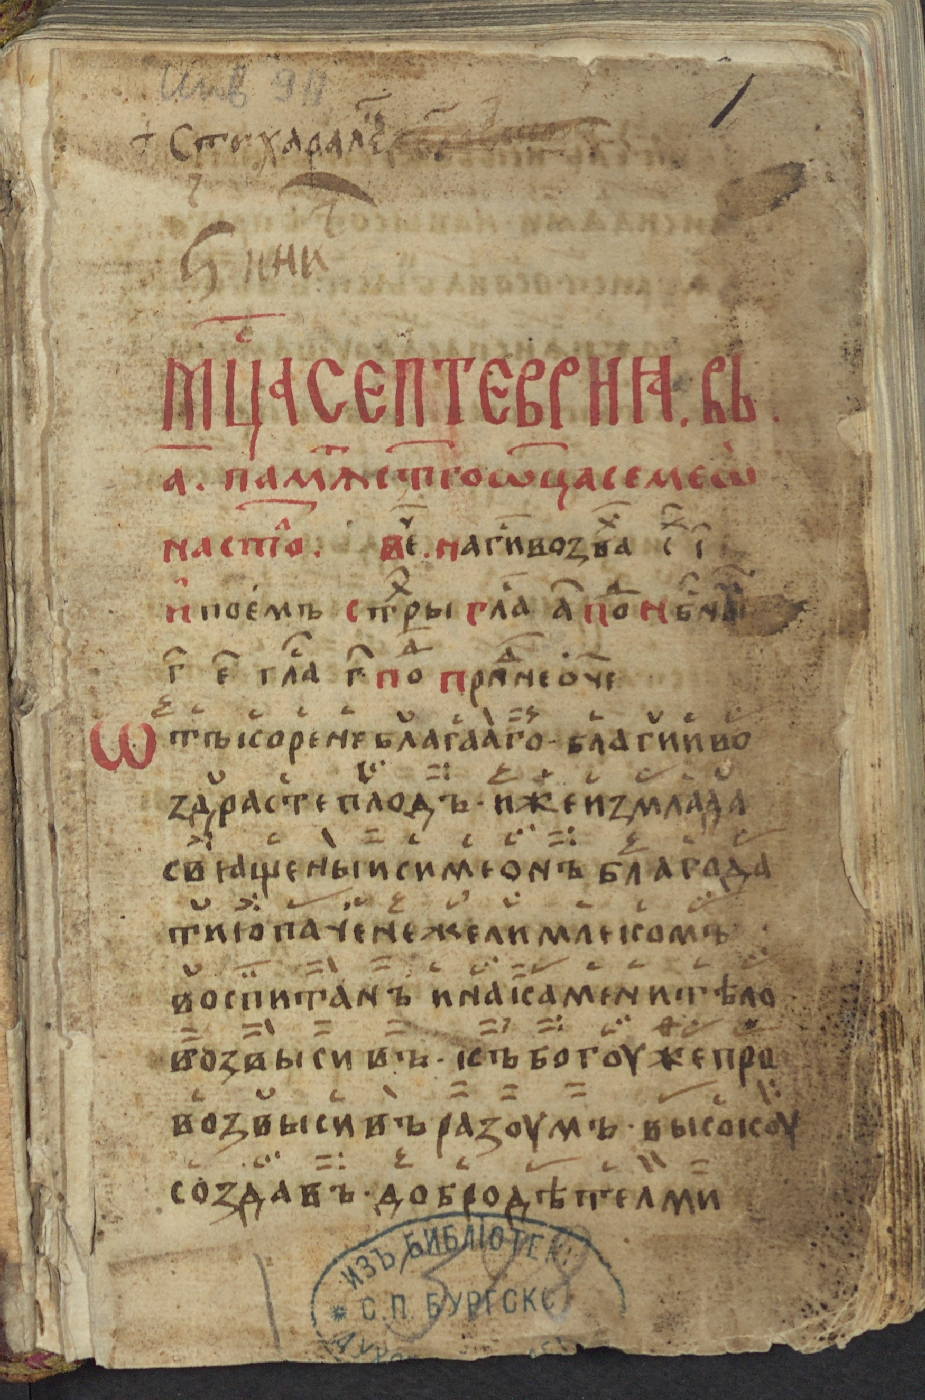 Инв 911
Стихарал
мц҃а септевриꙗ. въ.
а҃. памѧ ст҃го ѡц҃а семеѡ
на стло. ве҃. на ги возва
и поемъ ст҃ры гла а҃ по
г҃ е҃ гла г҃ по прпне оче
Ѿ пꙑ корене блага аго · благии во
здрасте плодъ · иже измлада
свꙗщеныи симеонъ благода
тию паче нежели млекомъ
воспитанъ и на камени тѣло
возвысивъ · къ богоу же прѣ
возвысивъ разоумъ · высокоу
создавъ · добродѣтелми
ИЗЪ БИБЛІОТЕК
С.П.БУРГСК